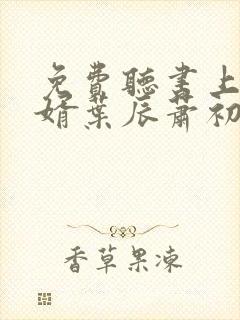 免費聽書上
婿葉辰蕭初
香草果凍